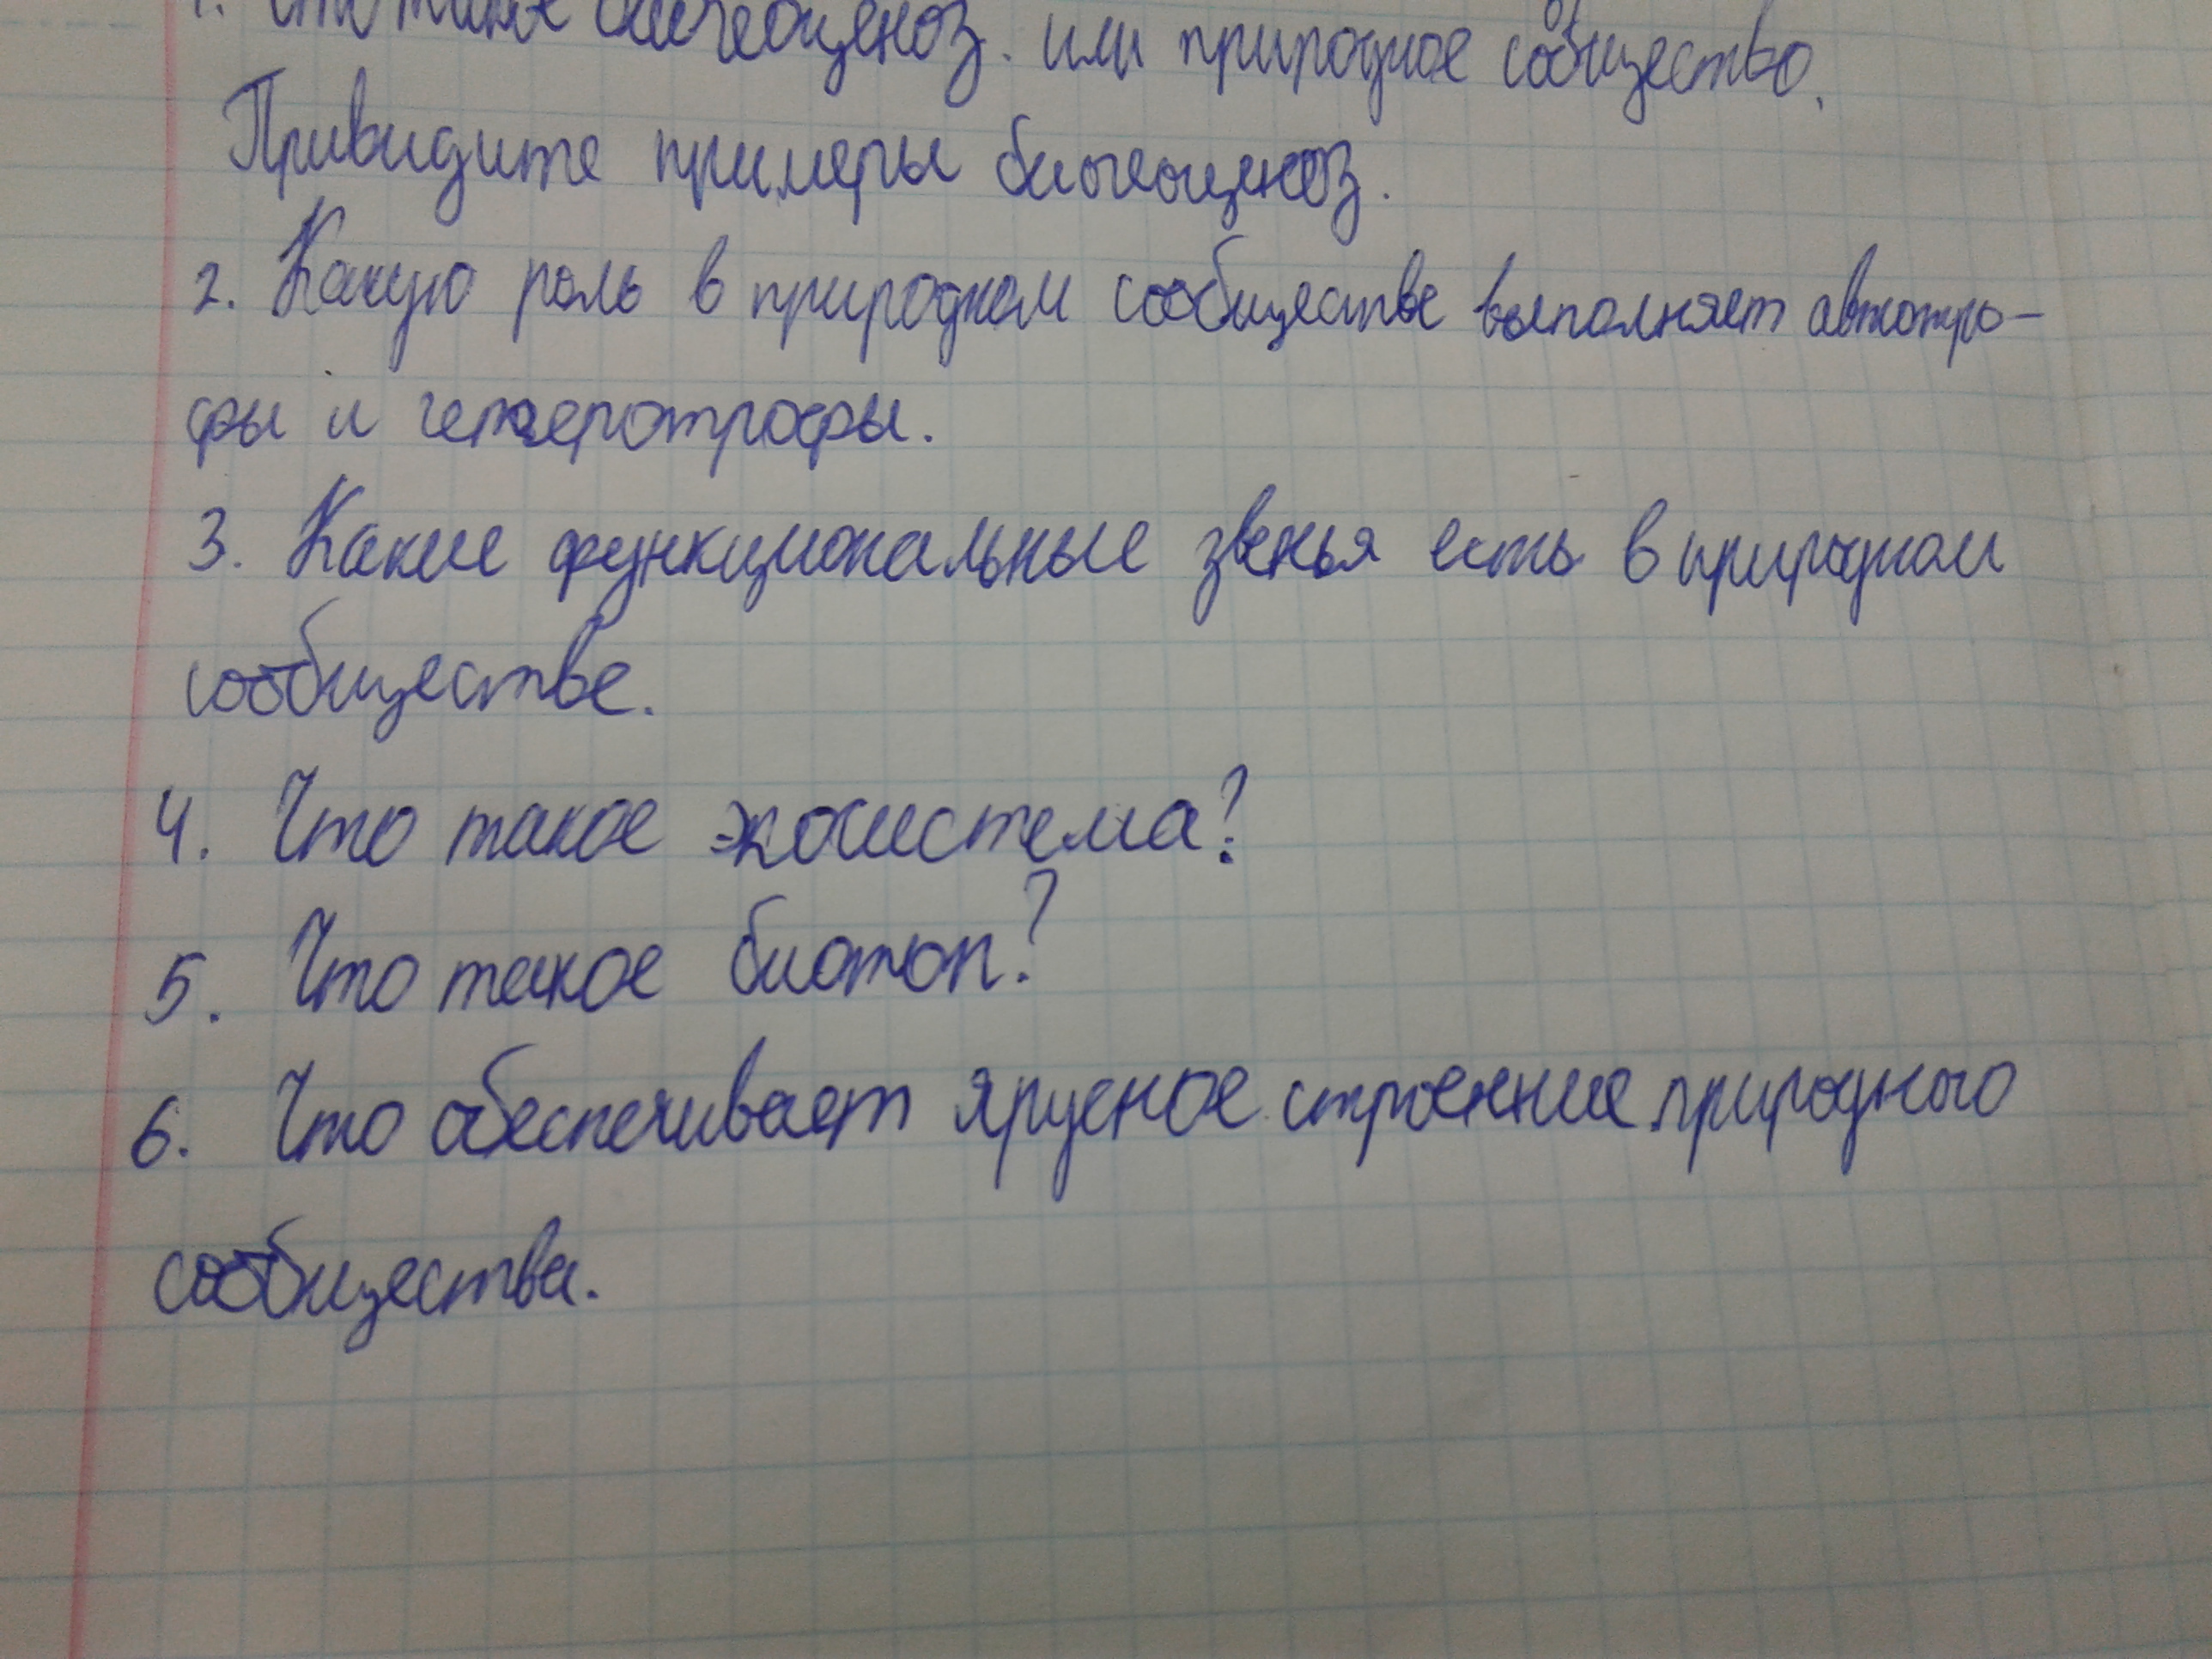 1. Что такое биогеоценоз. или природное сообщество.
Привидите примеры биогеоценоз.
2. Какую роль в природном сообществе выполняет автотро-
фы и гетеротрофы.
3. Какие функциональные звенья есть в природном
сообществе.
4. Что такое экосистема?
5. Что такое биотоп?
6. Что обеспечивает ярусное строение природного
сообщества.